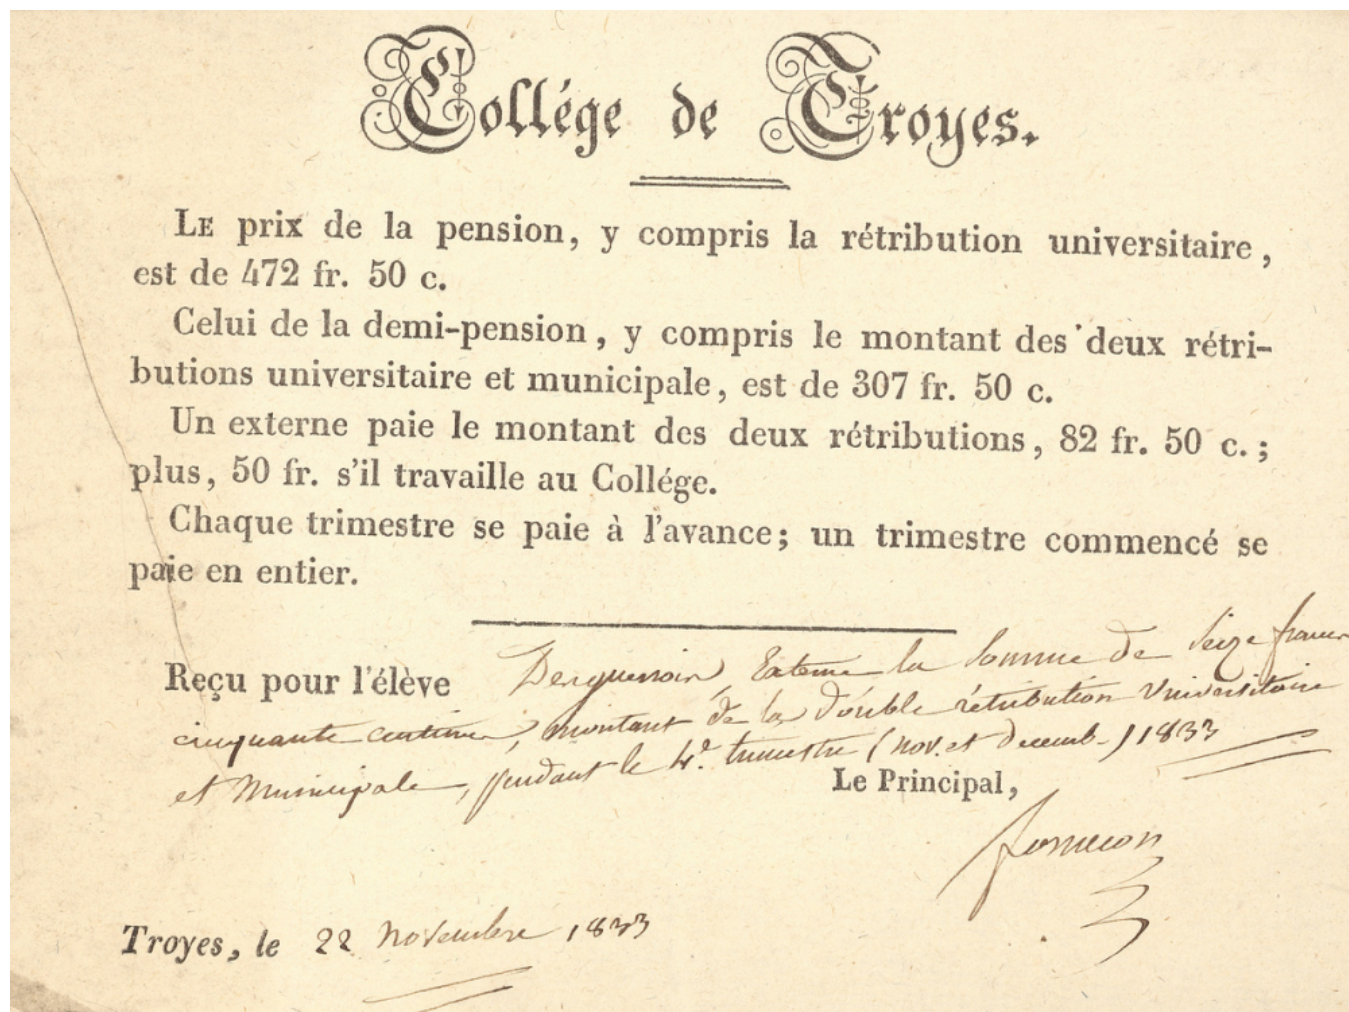 Collége de Troyes.
LE prix de la pension, y compris la rétribution universitaire,
est de 472 fr. 50 c.
Celui de la demi-pension, y compris le montant des deux rétri-
butions universitaire et municipale, est de 307 fr. 50 c.
Un externe paie le montant des deux rétributions, 82 fr. 50 c.;
plus, 50 fr. s'il travaille au Collége.
Chaque trimestre se paie à l'avance; un trimestre commencé se
paie en entier.
Reçu pour l'élève Externe la Somme de Seize francs
cinquante centimes, montant de la double rétribution Universitaire
et Municipale, pendant le 4e. trimestre (nov. et décemb.) 1833
Le Principal,
Troyes, le 22 novembre 1833